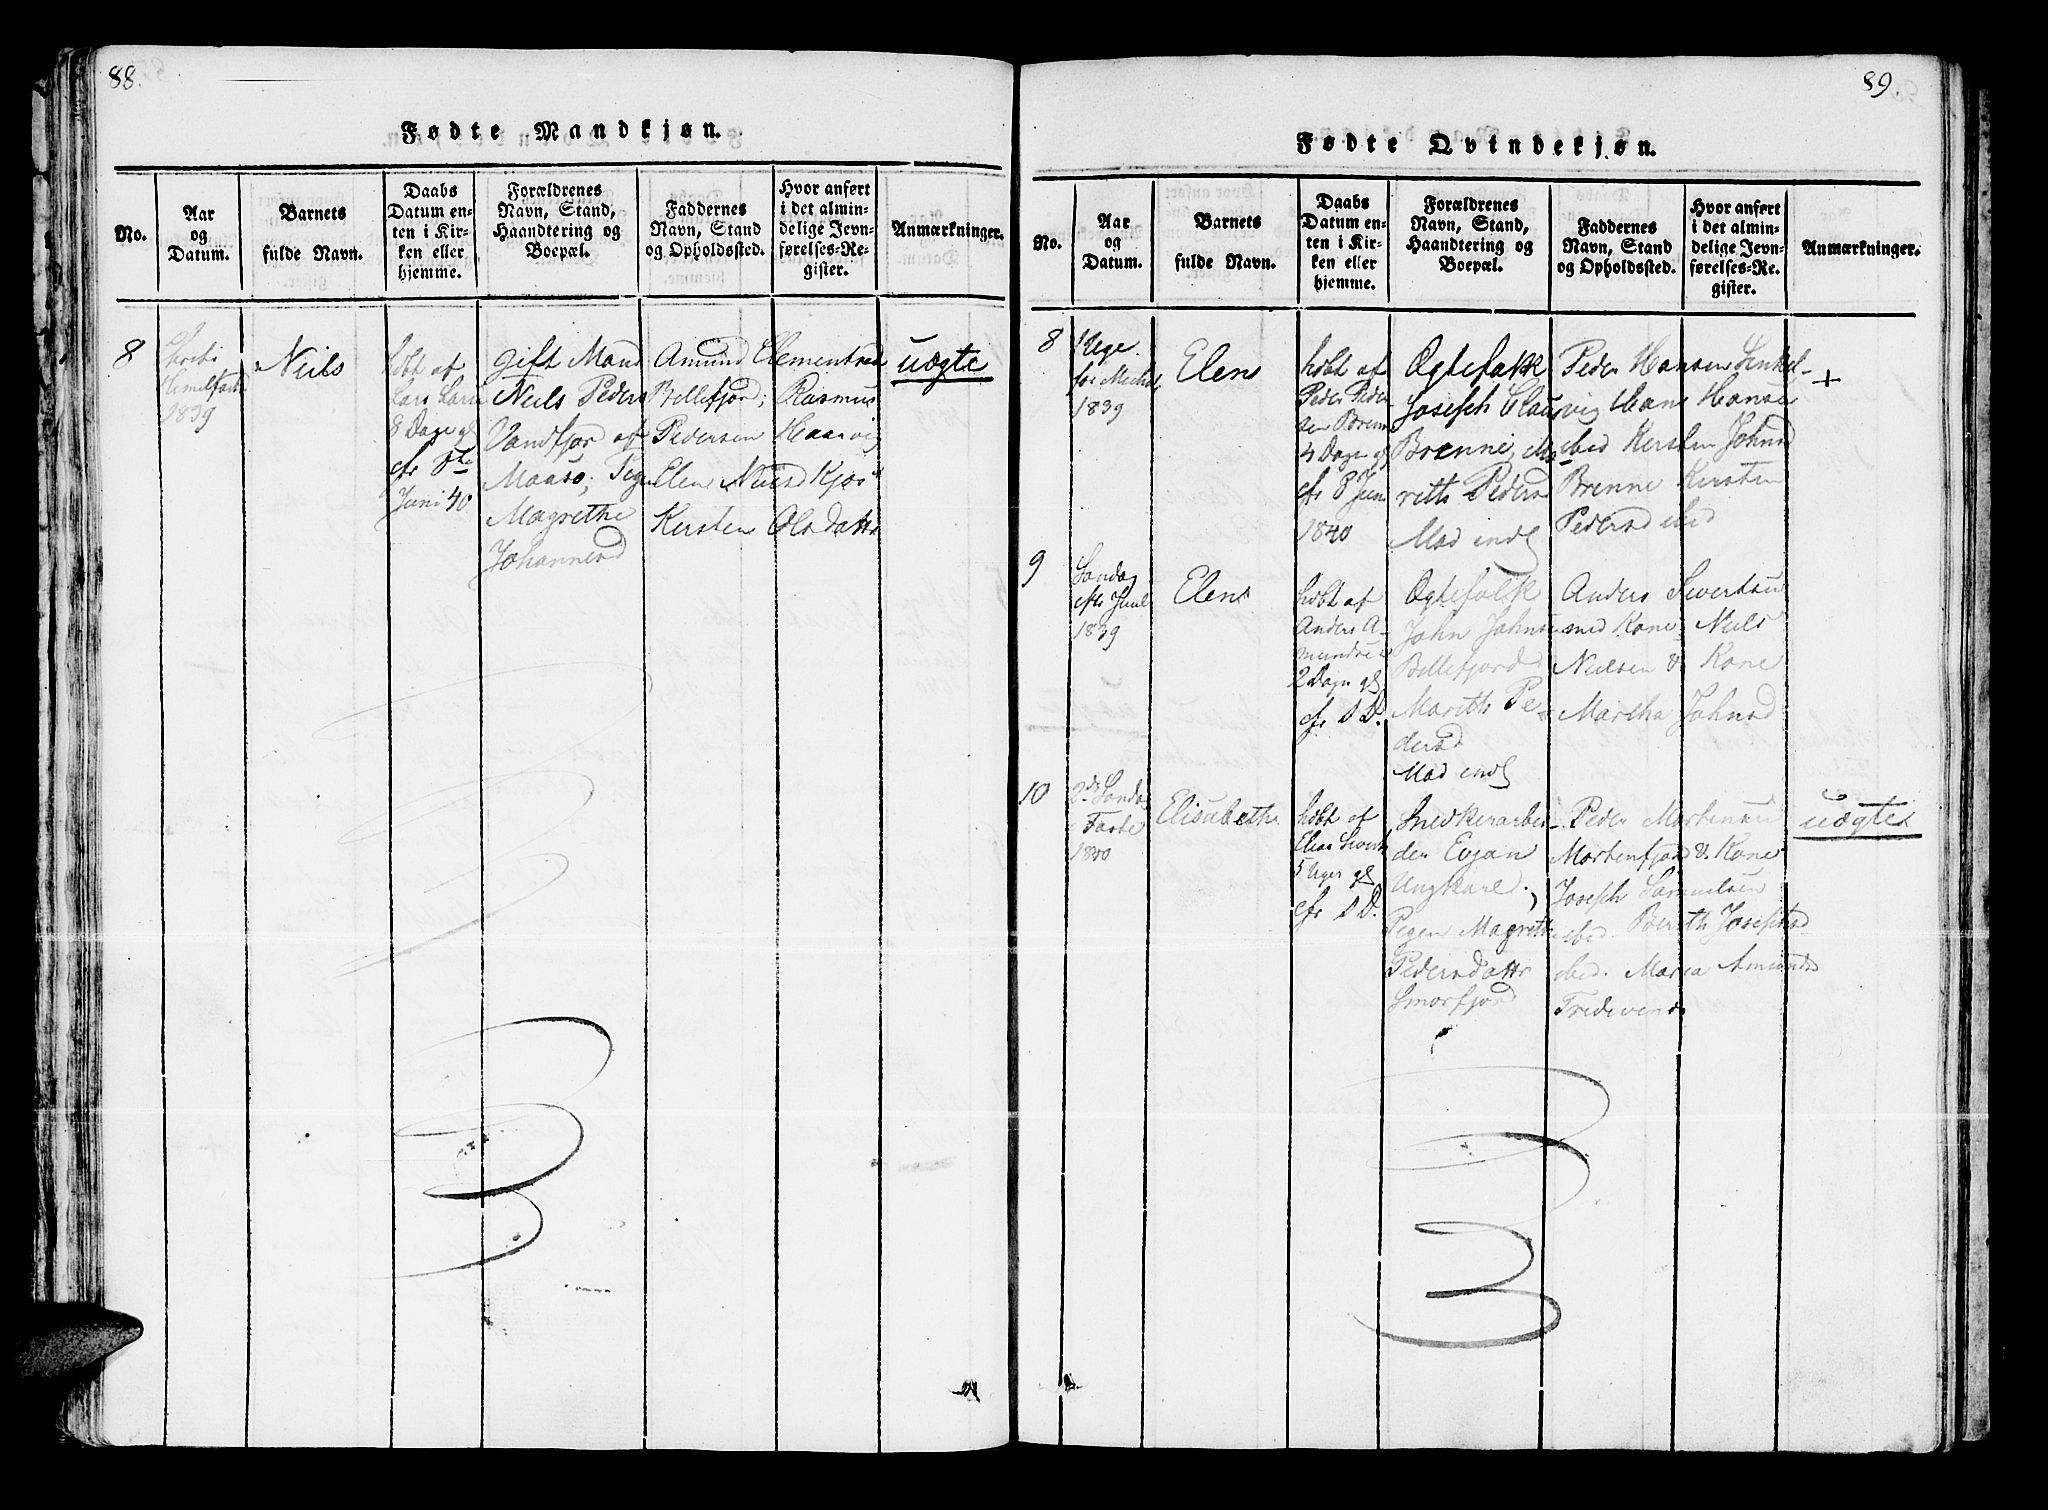 88.
Fødte Mandkjøn.
No.
Aar
og
Datum.
Barnets
fulde Navn.
Daabs
Datum en-
ten i Kir-
ken eller
hjemme.
Forældrenes
Navn, Stand,
Haandtering og
Boepæl.
Faddernes
Navn, Stand
og Opholdssted.
Hvor anført
i det almin-
delige Jevn-
førelses-Re-
gister.
Anmærkninger.
8
Christi
Himelfart
1839
Neils
døbt af
Lars Lars
8 Dage gl
cfr 8de
Juni 40
Gift Mand
Neils Peders
Vandfjor af
Maasø; Pige
Magrethe
Johannesd
Amund Clementsen
Bellefjord; Rasmus
Pedersen Haarvig
Elen Nielsd Kjos
Kersten Olsdattr
uægte
89.
Fødte Qvindekjøn.
No.
Aar
og
Datum.
Barnets
fulde Navn.
Daabs
Datum en-
ten i Kir-
ken eller
hjemme.
Forældrenes
Navn, Stand,
Haandtering og
Boepæl.
Faddernes
Navn, Stand
og Opholdssted.
Hvor anført
i det almin-
delige Jevn-
førelses-Re-
gister.
Anmærkninger.
8
1 Uge
før Michel
1839
Elen
døbt af
Peder Peder
sen Brenne
4 Dage gl
cfr 8 Juni
1840
Ogtefolk
Joseph Claus
Brenne, Ma
reth Pedersd
Mad indl
Peder Hansen Smkel-
vig Hans Hanse
ibid Kersten Johnsd
Brenne Kersten
Pedersd ibid
+
9
Sondag
eftr Juul
1839
Elen
døbt af
Anders A-
mundse
2 Dage gl
cfr S D.
Ogtefolk
John Johns
Bellefjord
Mareth Pe-
dersd
Mad indl
Anders Sivertsen
med Kone Neils
Neilsen & Kone
Martha Johnsd
10
2d Sondag
i Faste
1840
Elisabeth
døbt af
Elias Sivert
5 Uger gl
cfr S D.
Snedkerarbei-
der Evjan
Ungkarl;
Pigen Magreth
Pedersdattr
Smorfjord
Peder Mortensen
Mortenfjord & Kone
Joseph Samuelsen
ibid. Bereth Josephsd
ibid. Maria Amundsd
uægte